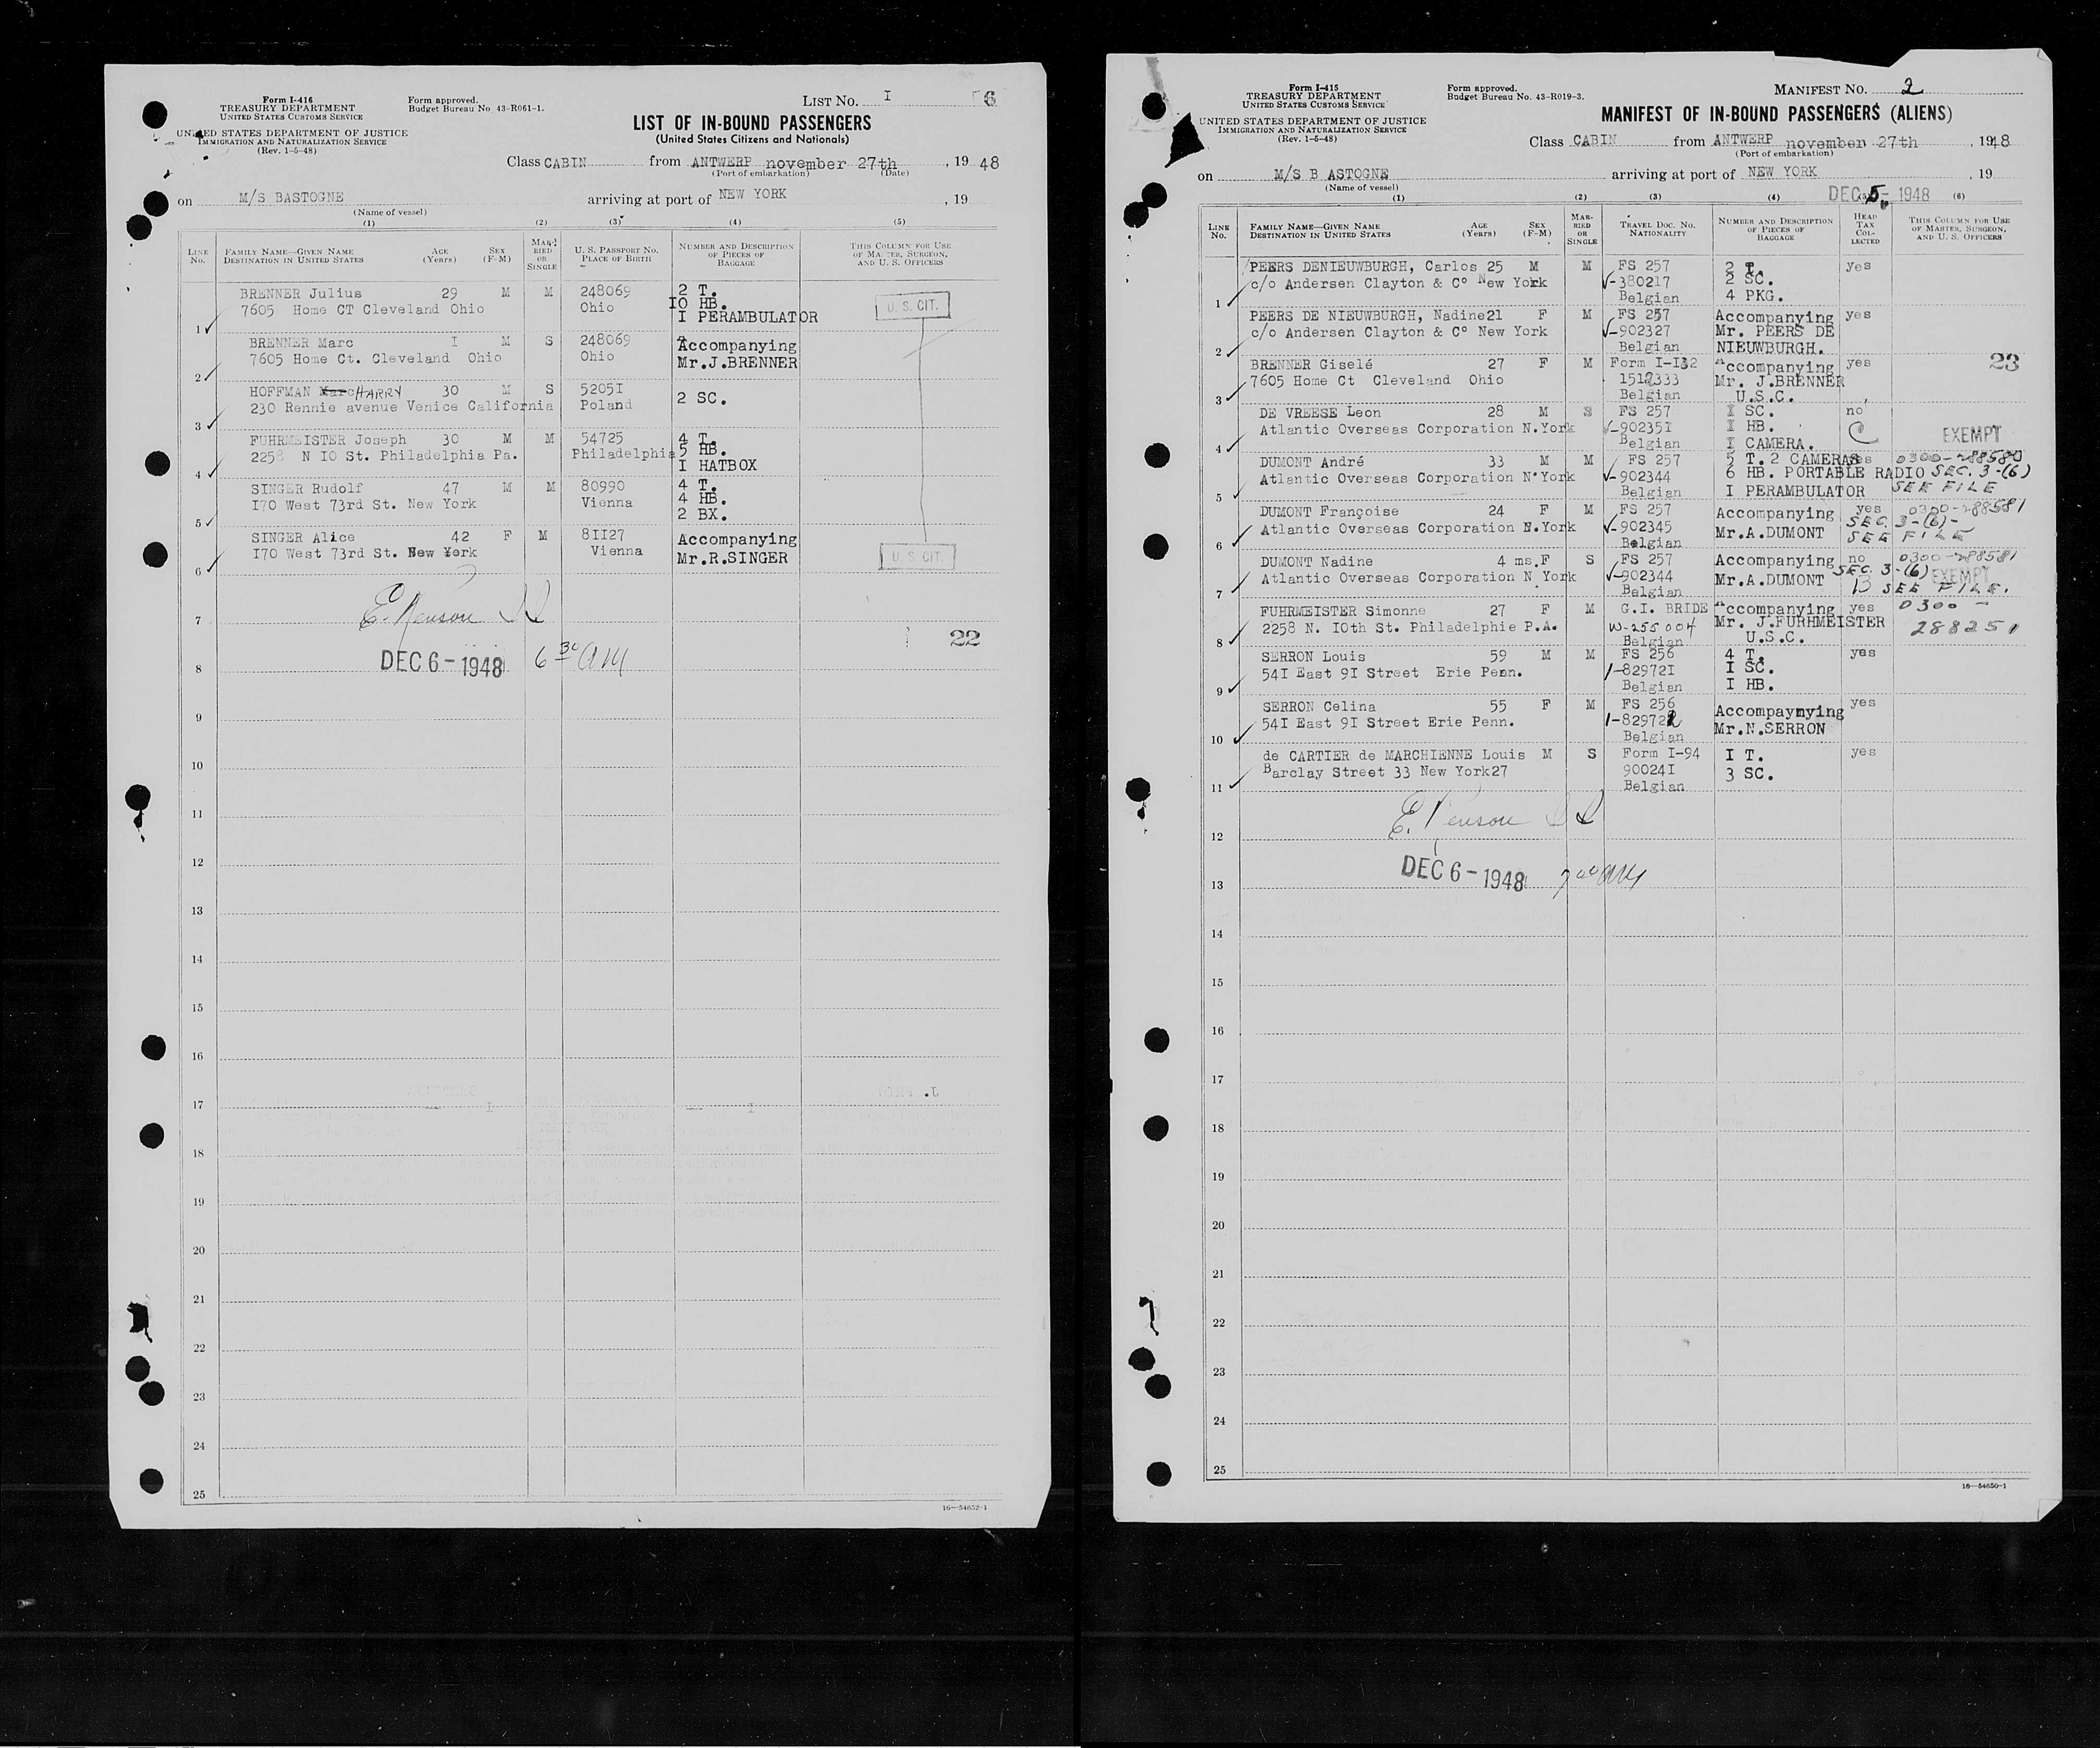 Form I-416
TREASURY DEPARTMENT
UNITED STATES CUSTOMS SERVICE
UNITED STATES DEPARTMENT OF JUSTICE
IMMIGRATION AND NATURALIZATION SERVICE
(Rev. 1-5-48)
Form approved.
Budget Bureau No. 43-R061-1.
LIST NO. I
6
LIST OF IN-BOUND PASSENGERS
(United States Citizens and Nationals)
Class CABIN from ANTWERP november 27th, 19 48
(Port of embarkation) (Date)
on M/S BASTOGNE arriving at port of NEW YORK, 19
(Name of vessel)
(1) (2) (3) (4) (5)
LINE NO. FAMILY NAME—GIVEN NAME DESTINATION IN UNITED STATES AGE (Years) SEX (F-M) MARRIED OR SINGLE U. S. PASSPORT NO. PLACE OF BIRTH NUMBER AND DESCRIPTION OF PIECES OF BAGGAGE THIS COLUMN FOR USE OF MASTER, SURGEON, AND U. S. OFFICERS
BRENNER Julius 29 M M 248069 2 T.
7605 Home CT Cleveland Ohio Ohio IO HB.
1 I PERAMBULATOR
U. S. CIT.
BRENNER Marc I M S 248069 Accompanying
7605 Home Ct. Cleveland Ohio Ohio Mr.J.BRENNER
2
HOFFMAN Marc HARRY 30 M S 5205I 2 SC.
230 Rennie avenue Venice California Poland
3
FUHRMEISTER Joseph 30 M M 54725 4 T.
2258 N IO St. Philadelphia Pa. Philadelphia 5 HB.
4 I HATBOX
SINGER Rudolf 47 M M 80990 4 T.
I70 West 73rd St. New York Vienna 4 HB.
5 2 BX.
SINGER Alice 42 F M 8II27 Accompanying
I70 West 73rd St. New York Vienna Mr.R.SINGER
6
U. S. CIT.
E. Renson
7
22
DEC 6 - 1948 6 30 AM
8
9
10
11
12
13
14
15
16
17
18
19
20
21
22
23
24
25
16—54652-1
Form I-415
TREASURY DEPARTMENT
UNITED STATES CUSTOMS SERVICE
UNITED STATES DEPARTMENT OF JUSTICE
IMMIGRATION AND NATURALIZATION SERVICE
(Rev. 1-5-48)
Form approved.
Budget Bureau No. 43-R019-3.
MANIFEST NO. 2
MANIFEST OF IN-BOUND PASSENGERS (ALIENS)
Class CABIN from ANTWERP november 27th, 1948
(Port of embarkation)
on M/S B ASTOGNE arriving at port of NEW YORK, 19
(Name of vessel)
DEC 5 - 1948
(1) (2) (3) (4) (6)
LINE NO. FAMILY NAME—GIVEN NAME DESTINATION IN UNITED STATES AGE (Years) SEX (F-M) MARRIED OR SINGLE TRAVEL DOC. NO. NATIONALITY NUMBER AND DESCRIPTION OF PIECES OF BAGGAGE HEAD TAX COLLECTED THIS COLUMN FOR USE OF MASTER, SURGEON, AND U. S. OFFICERS
PEERS DENIEUWBURGH, Carlos 25 M M FS 257 2 T. yes
c/o Andersen Clayton & C° New York V-380217 2 SC.
1 Belgian 4 PKG.
PEERS DE NIEUWBURGH, Nadine21 F M FS 257 Accompanying yes
c/o Andersen Clayton & C° New York V-902327 Mr. PEERS DE
2 Belgian NIEUWBURGH.
23
BRENNER Giselé 27 F M Form I-I32 Accompanying yes
7605 Home Ct Cleveland Ohio 1512333 Mr. J.BRENNER
3 Belgian U.S.C.
DE VREESE Leon 28 M S FS 257 I SC. no
Atlantic Overseas Corporation N.York V-90235I I HB. C
4 Belgian I CAMERA. EXEMPT
DUMONT André 33 M M FS 257 5 T. 2 CAMERAS yes 0300-288580
Atlantic Overseas Corporation N.York V-902344 6 HB. PORTABLE RADIO SEC. 3-(6)
5 Belgian I PERAMBULATOR SEE FILE
DUMONT Françoise 24 F M FS 257 Accompanying yes 0300-288581
Atlantic Overseas Corporation N.York V-902345 Mr.A.DUMONT SEC. 3-(6)-
6 Belgian SEE FILE
DUMONT Nadine 4 ms. F S FS 257 Accompanying no 0300-288581
Atlantic Overseas Corporation N York V-902344 Mr.A.DUMONT SEC. 3-(6) EXEMPT
7 Belgian B SEE FILE.
FUHRMEISTER Simonne 27 F M G.I. BRIDE Accompanying yes 0300 -
2258 N. IOth St. Philadelphie P.A. W-255004 Mr. J.FURHMEISTER 288251
8 Belgian U.S.C.
SERRON Louis 59 M M FS 256 4 T. yes
54I East 9I Street Erie Penn. 1-82972I I SC.
9 Belgian I HB.
SERRON Celina 55 F M FS 256 Accompaynying yes
54I East 9I Street Erie Penn. 1-829722 Mr.N.SERRON
10 Belgian
de CARTIER de MARCHIENNE Louis M S Form I-94 I T. yes
Barclay Street 33 New York27 90024I 3 SC.
11 Belgian
E. Renson
12
DEC 6 - 1948 7 00 AM
13
14
15
16
17
18
19
20
21
22
23
24
25
16—54650-1